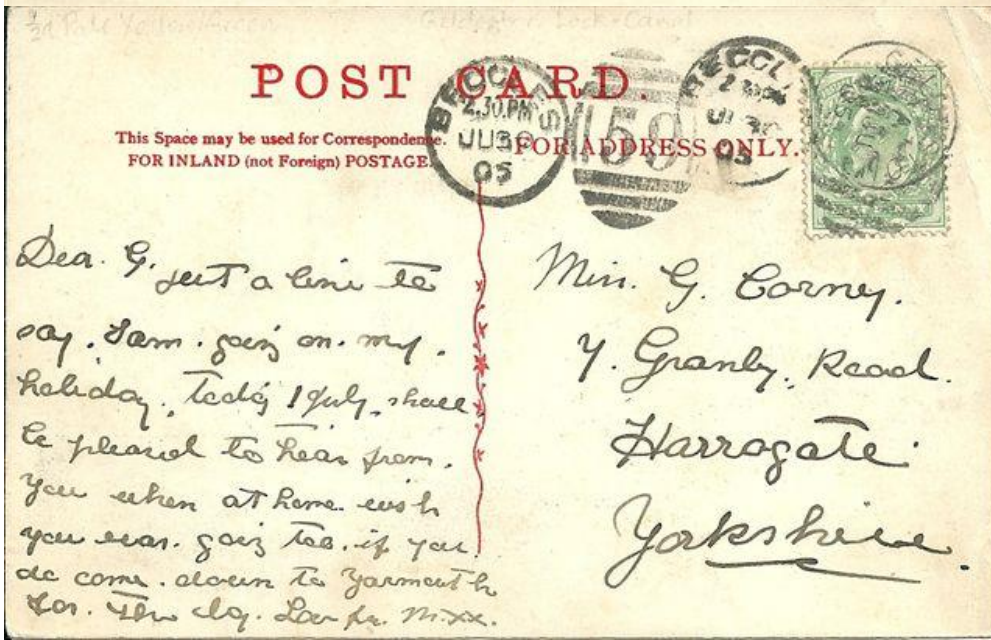 ½d Pale Yellow Green
Lock Canal
POST CARD.
This Space may be used for Correspondence.
FOR INLAND (not Foreign) POSTAGE.
FOR ADDRESS ONLY.
BECCLES
2.30.PM
JU 30
05
59
BECCLES
2.30 PM
JU 30
05
Dear. G. just a line to
say. I am. going on. my.
holiday, today 1 July. shall
be pleased to hear from.
you when at home. wish
you was. going too. if you.
do come. down to Yarmouth
for. The day.
Miss. G. Corney.
7. Granby. Road.
Harrogate
Yorkshire.